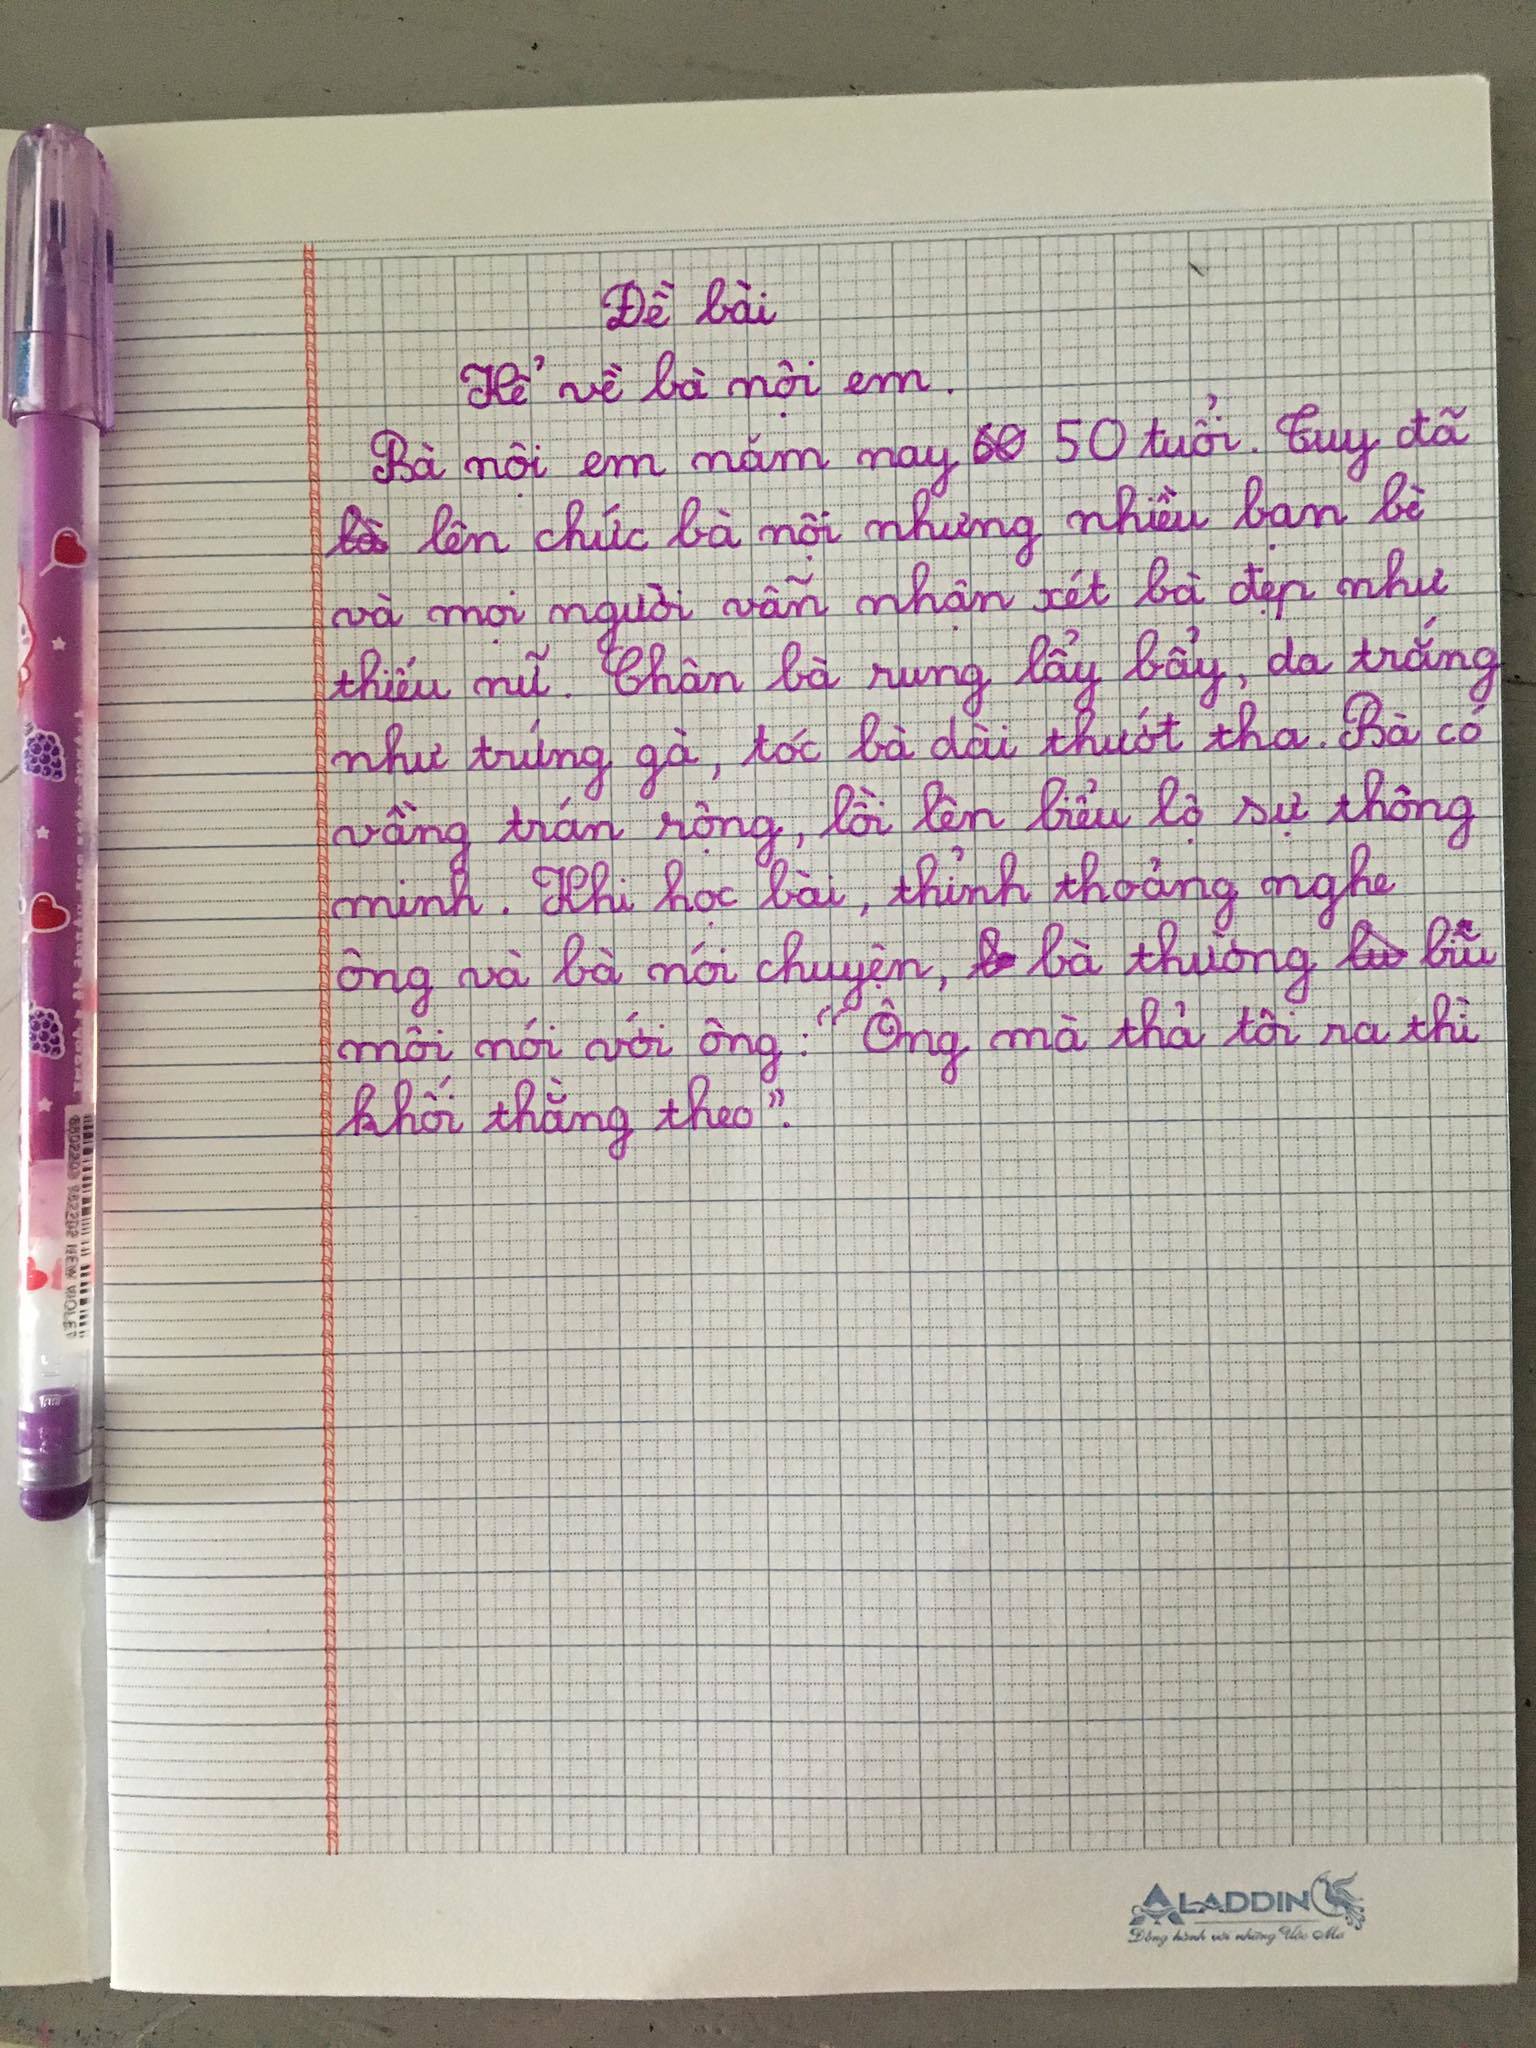 Đề bài
Kể về bà nội em.
Bà nội em năm nay 50 tuổi. Tuy đã
lên chức bà nội nhưng nhiều bạn bè
và mọi người vẫn nhận xét bà đẹp như
thiếu nữ. Chân bà rung lẩy bẩy, da trắng
như trứng gà, tóc bà dài thướt tha. Bà có
vầng trán rộng, lồi lên biểu lộ sự thông
minh. Khi học bài, thỉnh thoảng nghe
ông và bà nói chuyện, bà thường bĩu
môi nói với ông: "Ông mà thả tôi ra thì
khối thằng theo".
NEW VIOLET
ALADDIN
Đồng hành với những Ước Mơ